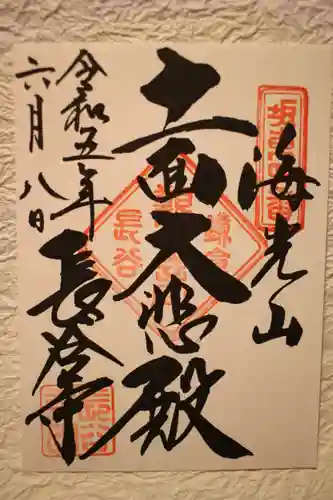 海光山
十一面大悲殿
長谷寺
令和五年
六月八日
坂東四番
鎌倉
長谷